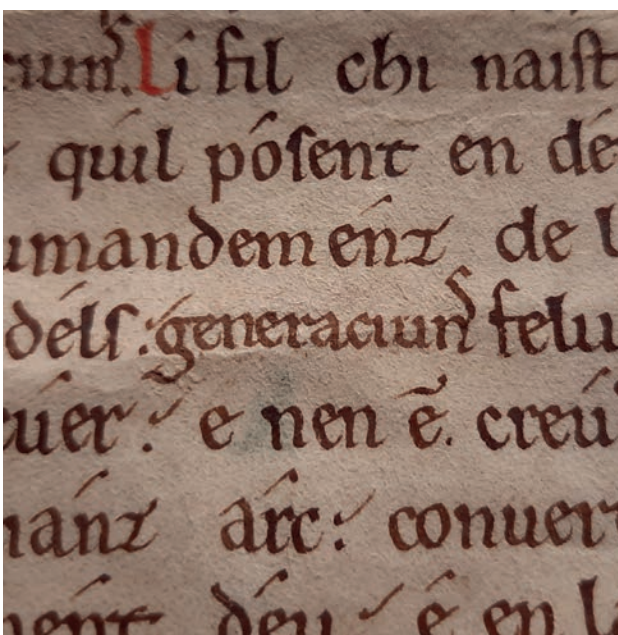 ciuns. Li fil chi naist
quil pósent en dé
umandemenz de l
déls: generaciuns felu
éuer: e nen ē. creú
nanz árc: conuer
ment deu é en la